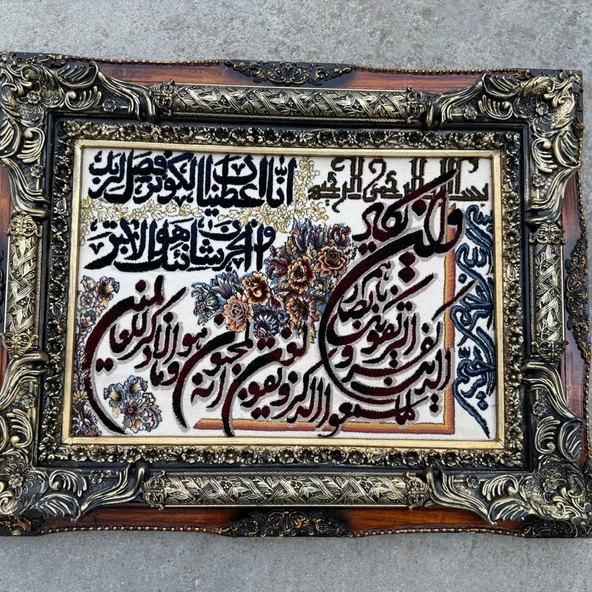 بسم الله الرحمن الرحیم
انا اعطیناک الکوثر فصل لربک
وانحر ان شانئک هو الابتر
وان یکاد
الذین کفروا لیزلقونک بابصارهم
لما سمعوا الذکر و یقولون انه لمجنون
وما هو الا ذکر للعالمین